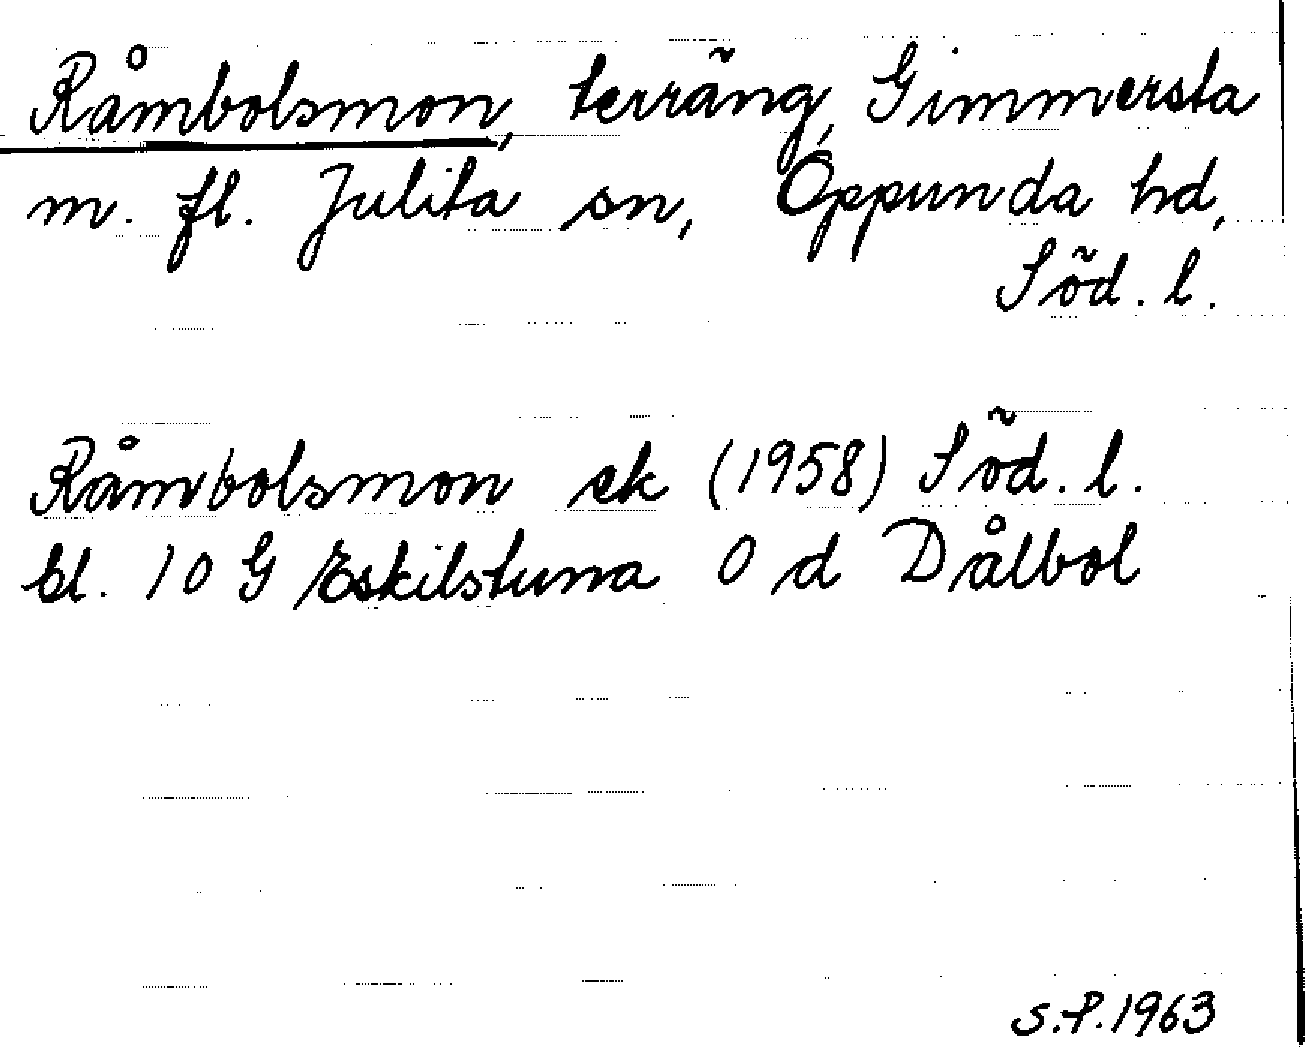 Råmbolsmon, terräng, Gimmersta
m. fl. Julita sn, Oppunda hd,
Söd. l.
Råmbolsmon ek (1958) Söd. l.
bl. 10 G Eskilstuna 0 d Dålbol
S.P. 1963